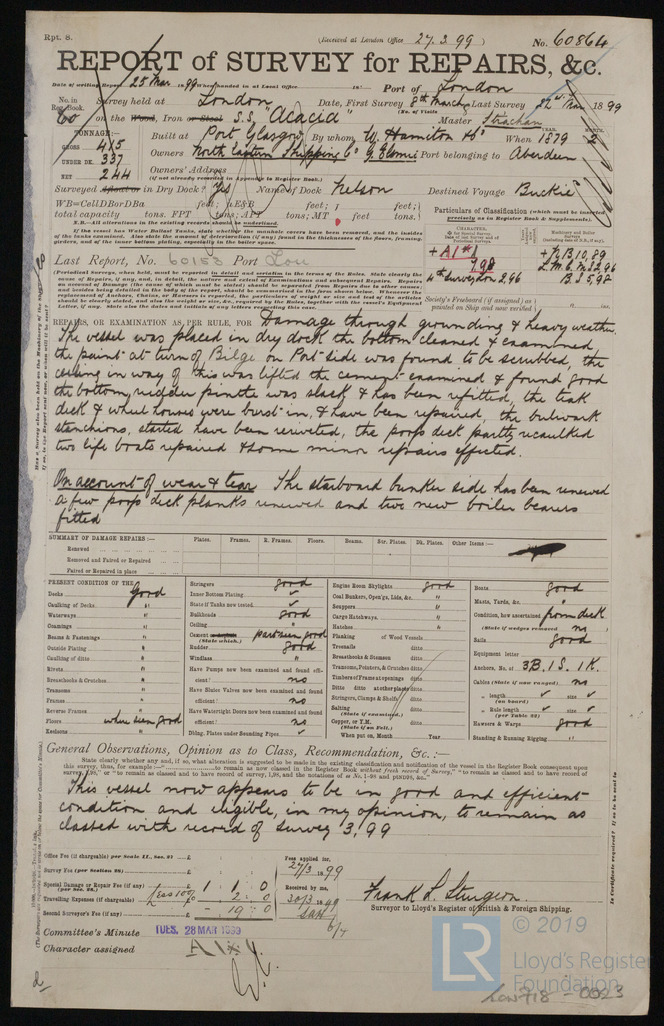 Rpt. 8.
(Received at London Office 27.3.99)
No. 60864
REPORT of SURVEY for REPAIRS, &c.
Date of writing Report 25 Mar 1899 When handed in at Local Office 18 Port of London
No. in Reg. Book. 60 Survey held at London Date, First Survey 8th March Last Survey 22nd Mar 1899
on the Wood, Iron or Steel S.S. "Acacia" Master Strachan
TONNAGE:—
GROSS 415
UNDER DK. 337
NET 244
Built at Port Glasgow By whom W. Hamilton & Co When 1879 2
Owners North Eastern Shipping Co Port belonging to Aberdeen
Owners' Address
(if not already recorded in Appendix to Register Book.)
Surveyed Afloat or in Dry Dock? Yes Name of Dock Nelson Destined Voyage Buckie
WB=CellDBorDBa feet; &E&B feet; feet;
total capacity tons. FPT tons; APT tons; MT feet tons.
N.B.—All alterations in the existing records should be underlined.
Particulars of Classification (which must be inserted precisely as in Register Book & Supplements).
+A1*
7,98
4th Survey Lon 2,96
+NB 10,89
L.M.C. 2,96
BS 5,98
Society's Freeboard (if assigned) as painted on Ship and now verified
Last Report, No. 60153 Port Lon
REPAIRS, OR EXAMINATION AS PER RULE, FOR Damage through grounding & heavy weather
The vessel was placed in dry dock the bottom cleaned & examined,
the paint at turn of Bilge on Port side was found to be scrubbed, the
ceiling in way of this was lifted the cement examined & found good
the bottom rudder pintle was slack & has been refitted, the teak
deck & wheel houses were burst in, & have been repaired, the bulwark
stanchions, started have been reriveted, the poop deck partly recaulked
two life boats repaired & some minor repairs effected.
On account of wear & tear The starboard bunker side has been renewed
a few poop deck planks renewed and two new boiler bearers
fitted
SUMMARY OF DAMAGE REPAIRS:— Plates. Frames. R. Frames. Floors. Beams. Str. Plates. Dk. Plates. Other Items:—
Renewed
Removed and Faired or Repaired
Faired or Repaired in place
PRESENT CONDITION OF THE
Decks good
Caulking of Decks "
Waterways "
Coamings "
Beams & Fastenings "
Outside Plating "
Caulking of ditto "
Rivets "
Breasthooks & Crutches "
Transoms "
Frames "
Reverse Frames "
Floors where seen good
Keelsons "
Stringers good
Inner Bottom Plating
State if Tanks now tested
Bulkheads good
Ceiling
Cement part seen good
(State which.)
Rudder good
Windlass "
Have Pumps now been examined and found efficient? no
Have Sluice Valves now been examined and found efficient? no
Have Watertight Doors now been examined and found efficient? no
Dblng. Plates under Sounding Pipes
Engine Room Skylights good
Coal Bunkers, Open'gs, Lids, &c. "
Scuppers "
Cargo Hatchways "
Hatches "
Planking of Wood Vessels
Treenails ditto
Breasthooks & Stemson ditto
Transoms, Pointers, & Crutches ditto
Timbers of Frame at openings ditto
Ditto ditto at other places ditto
Stringers, Clamps & Shelfs ditto
Salting ditto
(State if examined.)
Copper, or Y.M. ditto
(State if on Felt.)
When put on, Month Year
Boats good
Masts, Yards, &c. "
Condition, how ascertained from deck
(State if wedges removed) no
Sails good
Equipment letter
Anchors, No. of 3B. 1S. 1K.
Cables (State if now ranged) no
" length size
(on board)
" Rule length size
(per Table 22)
Hawsers & Warps good
Standing & Running Rigging "
General Observations, Opinion as to Class, Recommendation, &c.:—
This vessel now appears to be in good and efficient
condition and eligible, in my opinion, to remain as
classed with record of survey 3,99
Office Fee (if chargeable) per Scale II., Sec. 27) £
Survey Fee (per Section 28) £
Special Damage or Repair Fee (if any) £ 1 : 1 : 0
(per Sec. 28.)
Travelling Expenses (if chargeable) less 10% £ 2 : 0
Second Surveyor's Fee (if any) £ 19 : 0
Fees applied for, 27/3 1899
Received by me, 30/3 1899
6/4
Frank L. Sturgeon.
Surveyor to Lloyd's Register of British & Foreign Shipping.
Committee's Minute TUES. 28 MAR 1899
Character assigned A1*
LR
© 2019
Lloyd's Register
Foundation
Low718-0023